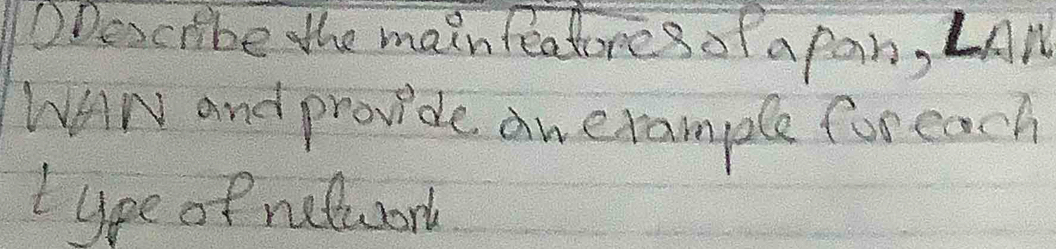 1) Describe the main features of a pan, LAN
WAN and provide an example for each
type of network